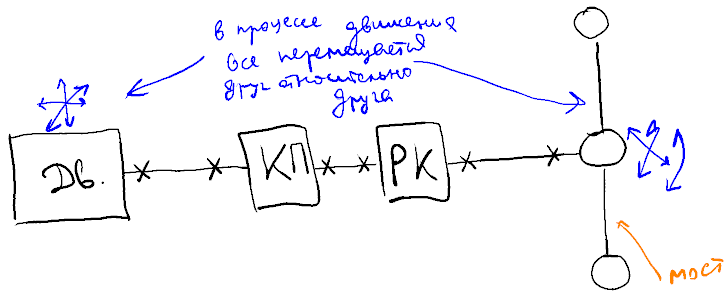 в процессе движения
все перемещается
друг относительно
друга
Дв.
КП
РК
мост